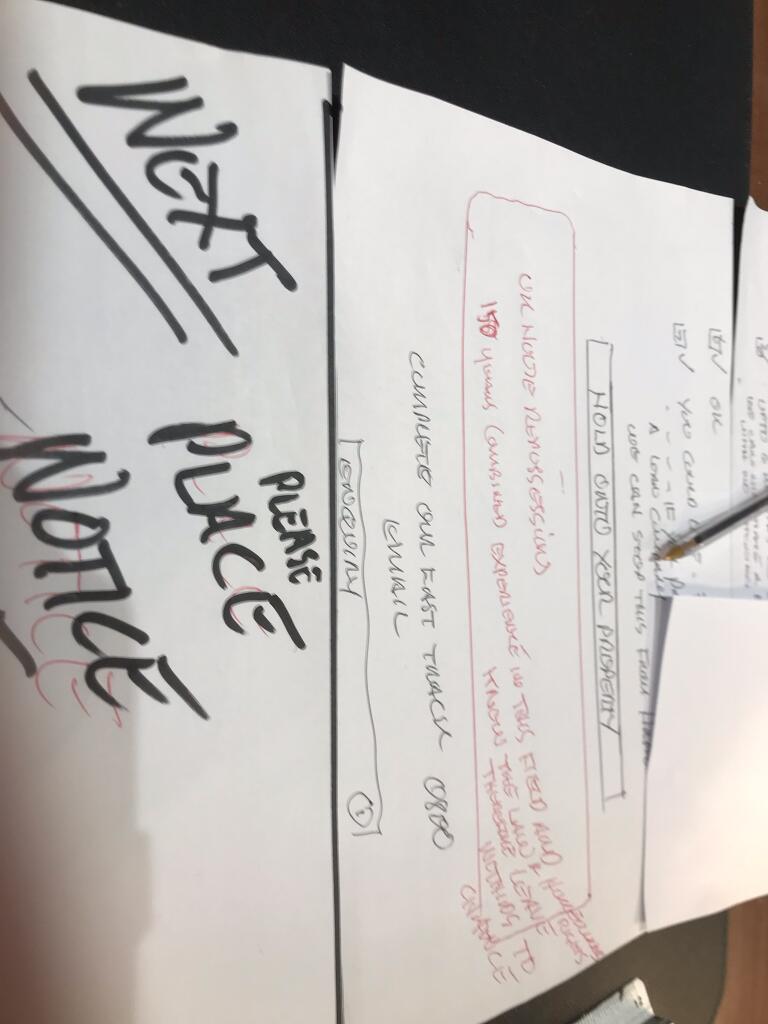 OK
YOU COULD
IF
A LOAN
WE CAN STOP THIS FROM
HOLD ONTO YOUR PROPERTY
UK HOUSE REPOSSESSIONS
150 years COMBINED EXPERIENCE in THIS FIELD AND
KNOW THE LAW & HOMEOWNERS RIGHTS
THEREFORE LEAVE
NOTHING TO
CHANCE
COMPLETE OUR FAST TRACK 0800
EMAIL
ENQUIRY
NEXT
PLEASE
PLACE
NOTICE